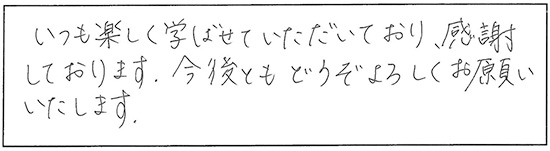 いつも楽しく学ばせていただいており、感謝
しております. 今後ともどうぞよろしくお願い
いたします.